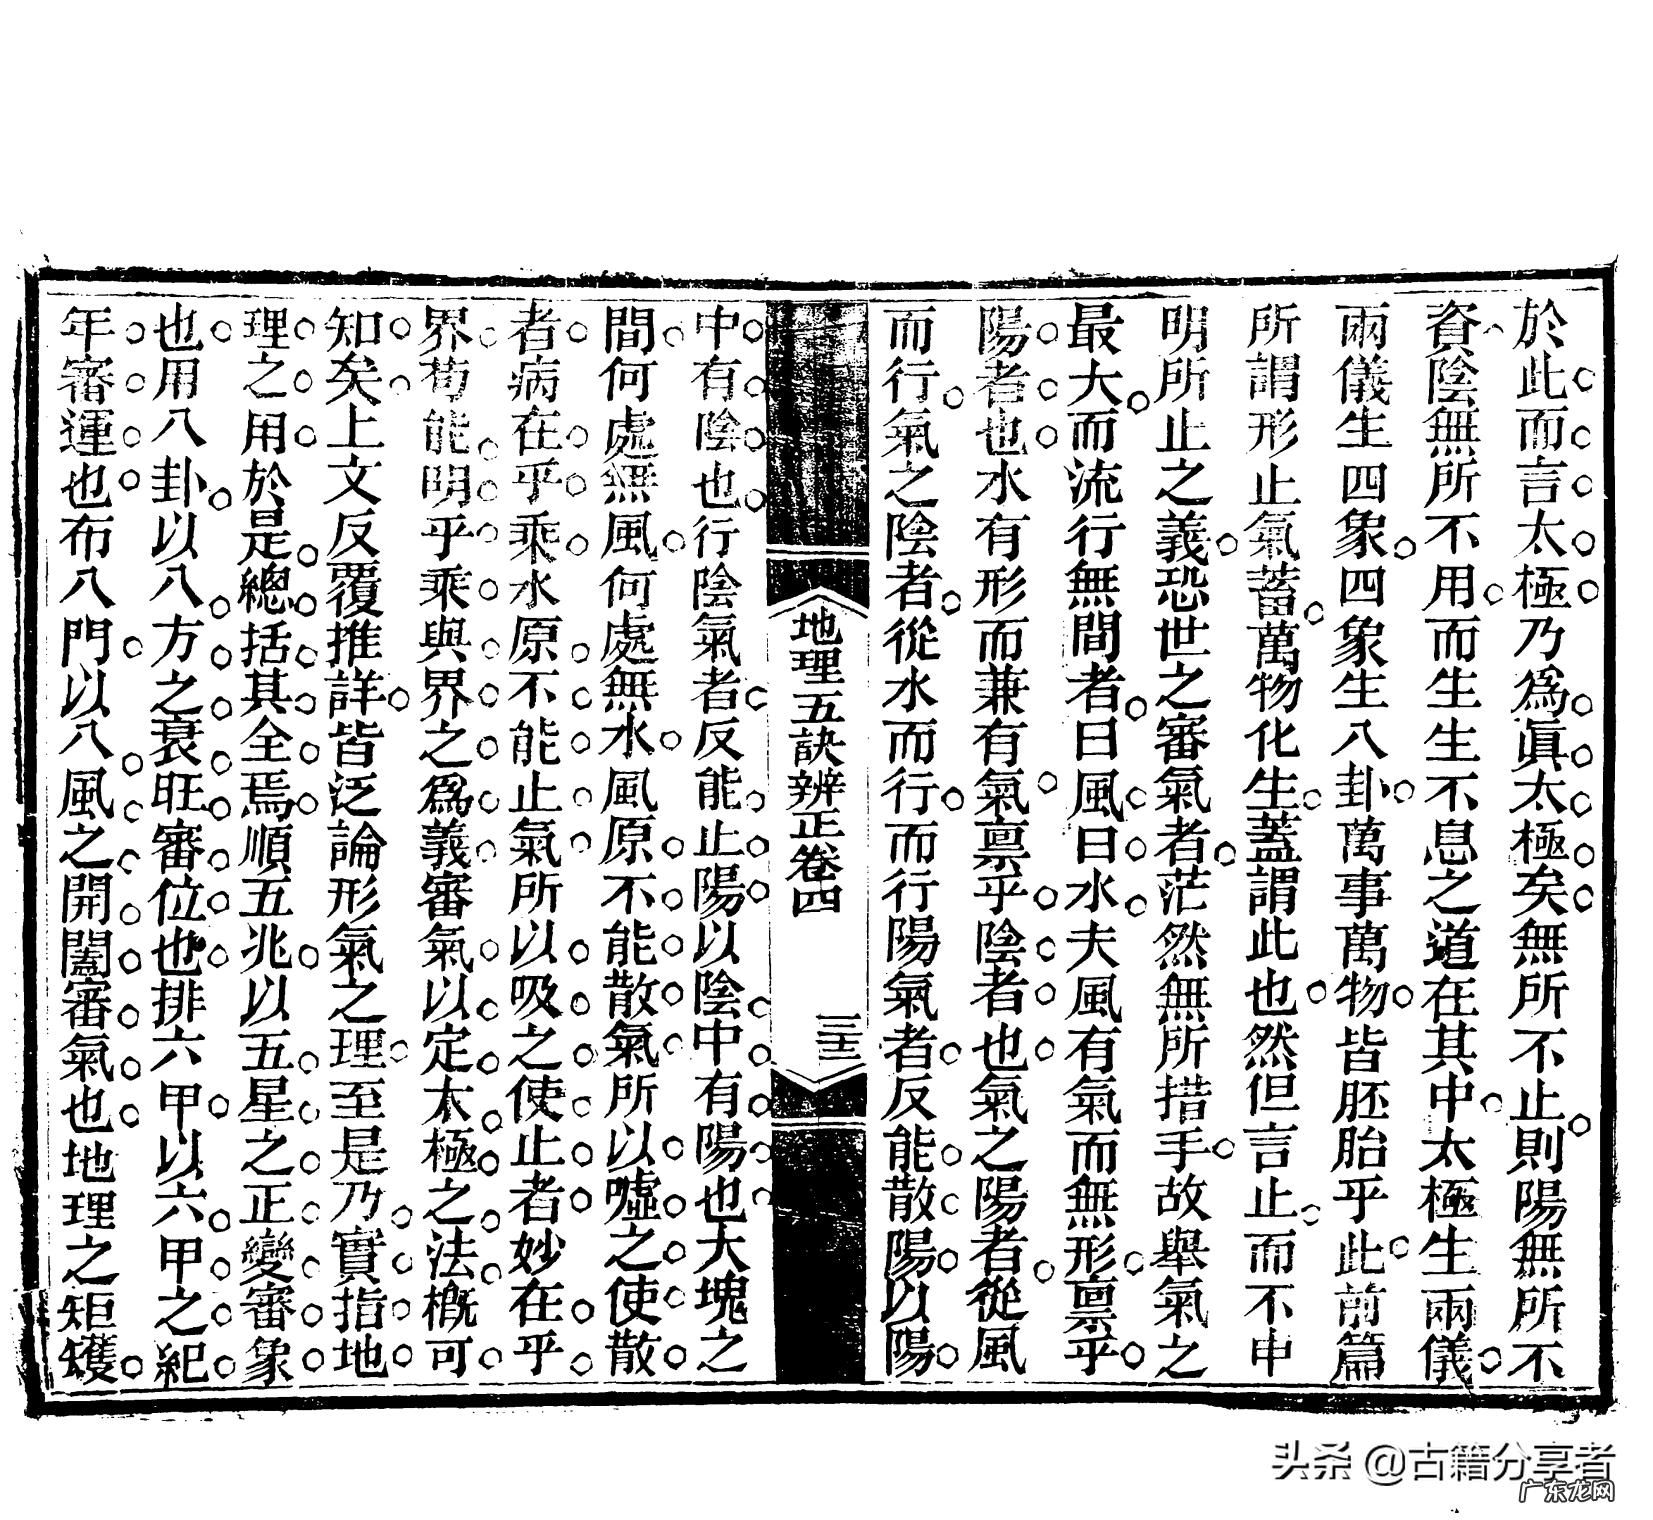 於此而言太極乃爲眞太極矣無所不止則陽無所不
資陰無所不用而生生不息之道在其中太極生兩儀
兩儀生四象四象生八卦萬事萬物皆胚胎乎此前篇
所謂形止氣蓄萬物化生蓋謂此也然但言止而不申
明所止之義恐世之審氣者茫然無所措手故舉氣之
最大而流行無間者曰風曰水夫風有氣而無形禀乎
陽者也水有形而兼有氣禀乎陰者也氣之陽者從風
而行氣之陰者從水而行而行陽氣者反能散陽以陽
地理五訣辨正卷四
三十三
中有陰也行陰氣者反能止陽以陰中有陽也大塊之
間何處無風何處無水風原不能散氣所以噓之使散
者病在乎乘水原不能止氣所以吸之使止者妙在乎
界苟能明乎乘與界之爲義審氣以定太極之法概可
知矣上文反覆推詳皆泛論形氣之理至是乃實指地
理之用於是總括其全焉順五兆以五星之正變審象
也用八卦以八方之衰旺審位也排六甲以六甲之紀
年審運也布八門以八風之開闔審氣也地理之矩矱
头条 @古籍分享者
广东龙网